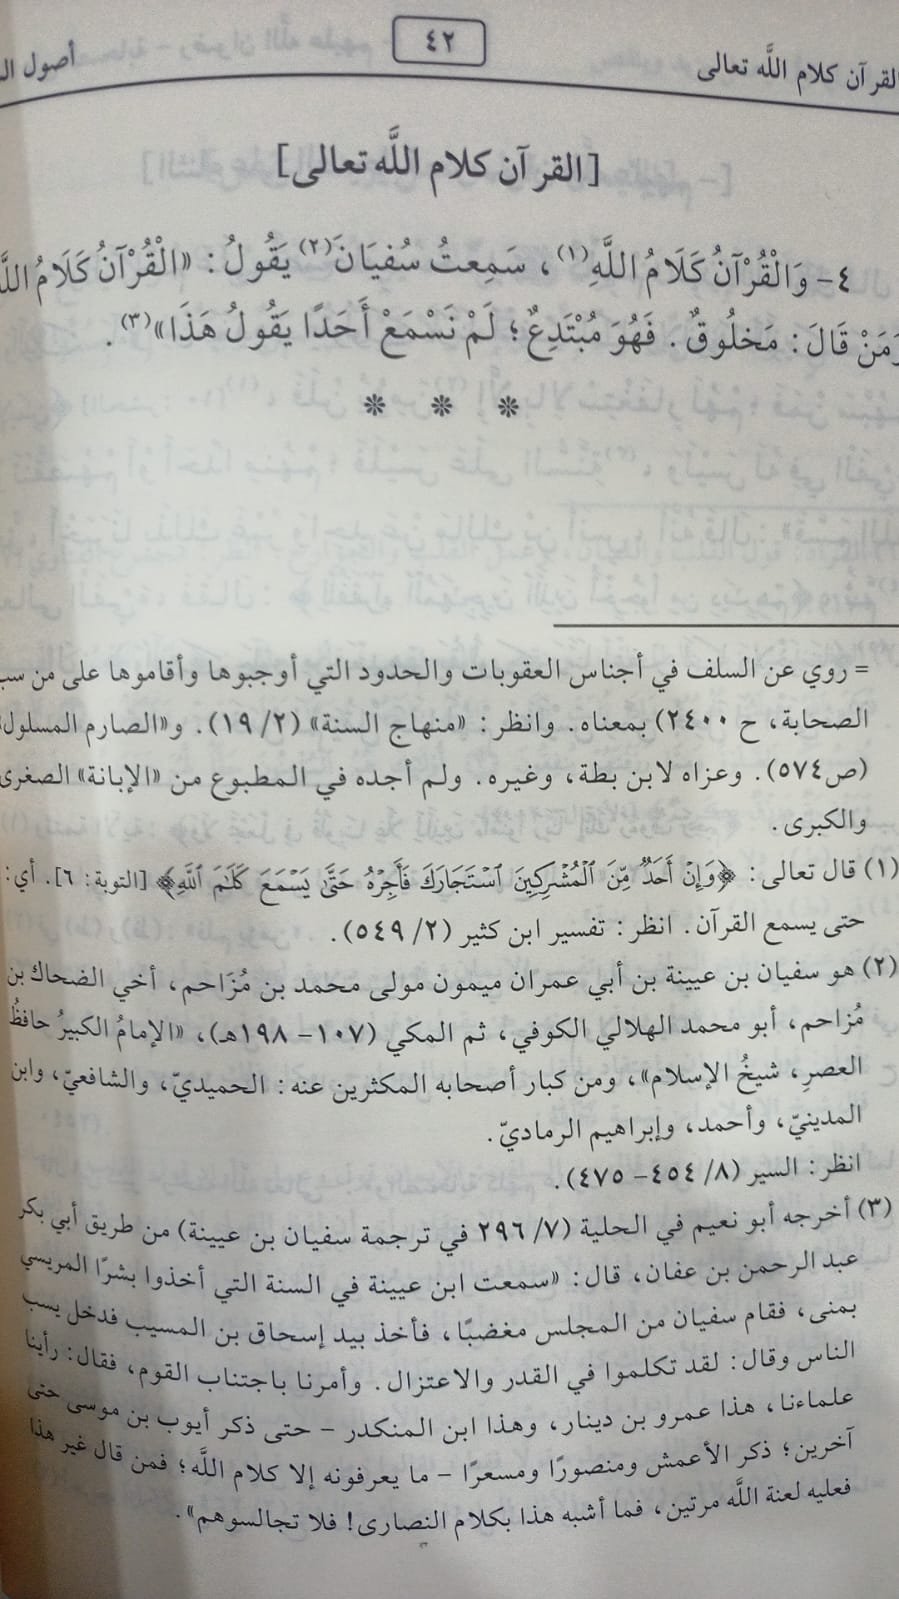 القرآن كلام اللَّه تعالى
٤٢
أصول
[القرآن كلام اللَّه تعالى]
٤- وَالْقُرْآنُ كَلَامُ اللَّهِ(١)، سَمِعتُ سُفيَانَ(٢) يَقُولُ: «الْقُرْآنُ كَلَامُ
وَمَنْ قَالَ: مَخلُوقٌ. فَهُوَ مُبْتَدِعٌ؛ لَمْ نَسْمَعْ أَحَدًا يَقُولُ هَذَا»(٣).
= روي عن السلف في أجناس العقوبات والحدود التي أوجبوها وأقاموها على من
الصحابة، ح ٢٤٠٠) بمعناه. وانظر: «منهاج السنة» (٢/ ١٩). و«الصارم المسلول»
(ص٥٧٤). وعزاه لابن بطة، وغيره. ولم أجده في المطبوع من «الإبانة» الصغرى
والكبرى.
(١) قال تعالى: ﴿وَإِنْ أَحَدٌ مِّنَ ٱلْمُشْرِكِينَ ٱسْتَجَارَكَ فَأَجِرْهُ حَتَّىٰ يَسْمَعَ كَلَٰمَ ٱللَّهِ﴾ [التوبة: ٦]. أي:
حتى يسمع القرآن. انظر: تفسير ابن كثير (٢/ ٥٤٩).
(٢) هو سفيان بن عيينة بن أبي عمران ميمون مولى محمد بن مُزَاحم، أخي الضحاك بن
مُزاحم، أبو محمد الهلالي الكوفي، ثم المكي (١٠٧- ١٩٨هـ)، «الإمامُ الكبيرُ حافظُ
العصرِ، شيخُ الإسلام»، ومن كبار أصحابه المكثرين عنه: الحميديّ، والشافعيّ، وابن
المدينيّ، وأحمد، وإبراهيم الرماديّ.
انظر: السير (٨/ ٤٥٤- ٤٧٥).
(٣) أخرجه أبو نعيم في الحلية (٧/ ٢٩٦ في ترجمة سفيان بن عيينة) من طريق أبي بكر
عبد الرحمن بن عفان، قال: «سمعت ابن عيينة في السنة التي أخذوا بشرًا المريسي
بمنى، فقام سفيان من المجلس مغضبًا، فأخذ بيد إسحاق بن المسيب فدخل يسب
الناس وقال: لقد تكلموا في القدر والاعتزال. وأمرنا باجتناب القوم، فقال: رأينا
علماءنا، هذا عمرو بن دينار، وهذا ابن المنكدر - حتى ذكر أيوب بن موسى حتى
آخرين؛ ذكر الأعمش ومنصورًا ومسعرًا - ما يعرفونه إلا كلام اللَّه؛ فمن قال غير هذا
فعليه لعنة اللَّه مرتين، فما أشبه هذا بكلام النصارى! فلا تجالسوهم».